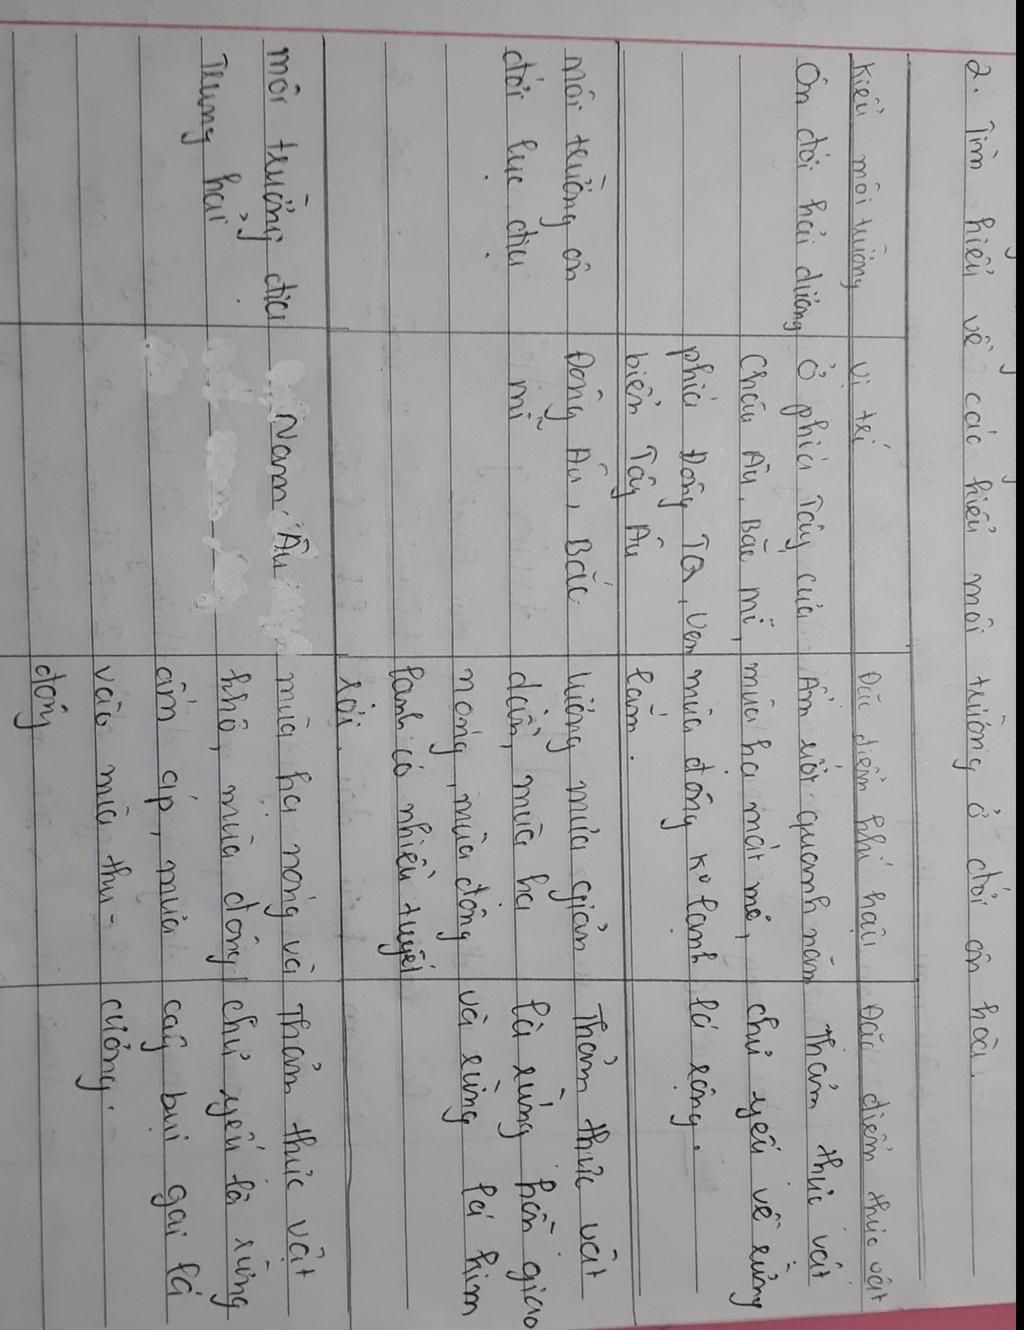 2. Tìm hiểu về các kiểu môi trường ở đới ôn hòa.
Kiểu môi trường
Vị trí
Đặc điểm khí hậu
Đặc điểm thực vật
Ôn đới hải dương
Ở phía Tây của
Châu Âu, Bắc Mĩ,
phía Đông TQ, ven
biển Tây Âu
Ẩm ướt quanh năm
mùa hạ mát mẻ,
mùa đông kº lạnh
lắm.
Thảm thực vật
chủ yếu về rừng
lá rộng.
môi trường ôn
đới lục địa
Đông Âu, Bắc
mĩ
lượng mưa giảm
dần, mùa hạ
nóng, mùa đông
lạnh có nhiều tuyết
rơi.
Thảm thực vật
là rừng hỗn giao
và rừng lá kim
môi trường địa
Trung hải
Nam Âu
mùa hạ nóng và
khô, mùa đông
ấm áp, mưa
vào mùa thu -
đông
Thảm thực vật
chủ yếu là rừng
cây bụi gai lá
cứng.